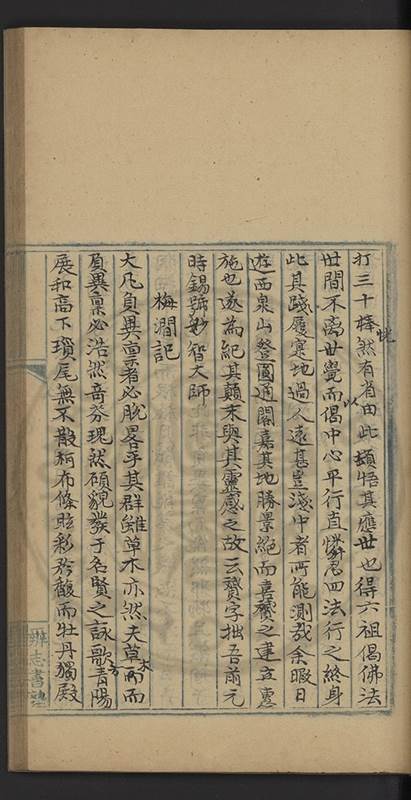 打三十棒恍然有省由此頓悟其應世也得六祖偈佛法
世間不离世覺而偈以中心平行直慚忍四法行之終身
此其踐履寔地過人遠甚豈淺中者所能測哉余暇日
遊西泉山登圓通閣嘉其地勝景絕而喜賛之建立惠
施也遂為紀其顛末與其靈感之故云賛字拙吾前元
時錫號妙智大師
梅澗記
大凡負異稟者必脫畧乎其群雖草木亦然夫草木而
負異稟必浩然奇芬瑰然碩貌發于名賢之詠歌方青陽
展和高下瑣尾無不敷柯布條眩彩矜馥而牡丹獨殿
辨志書塾